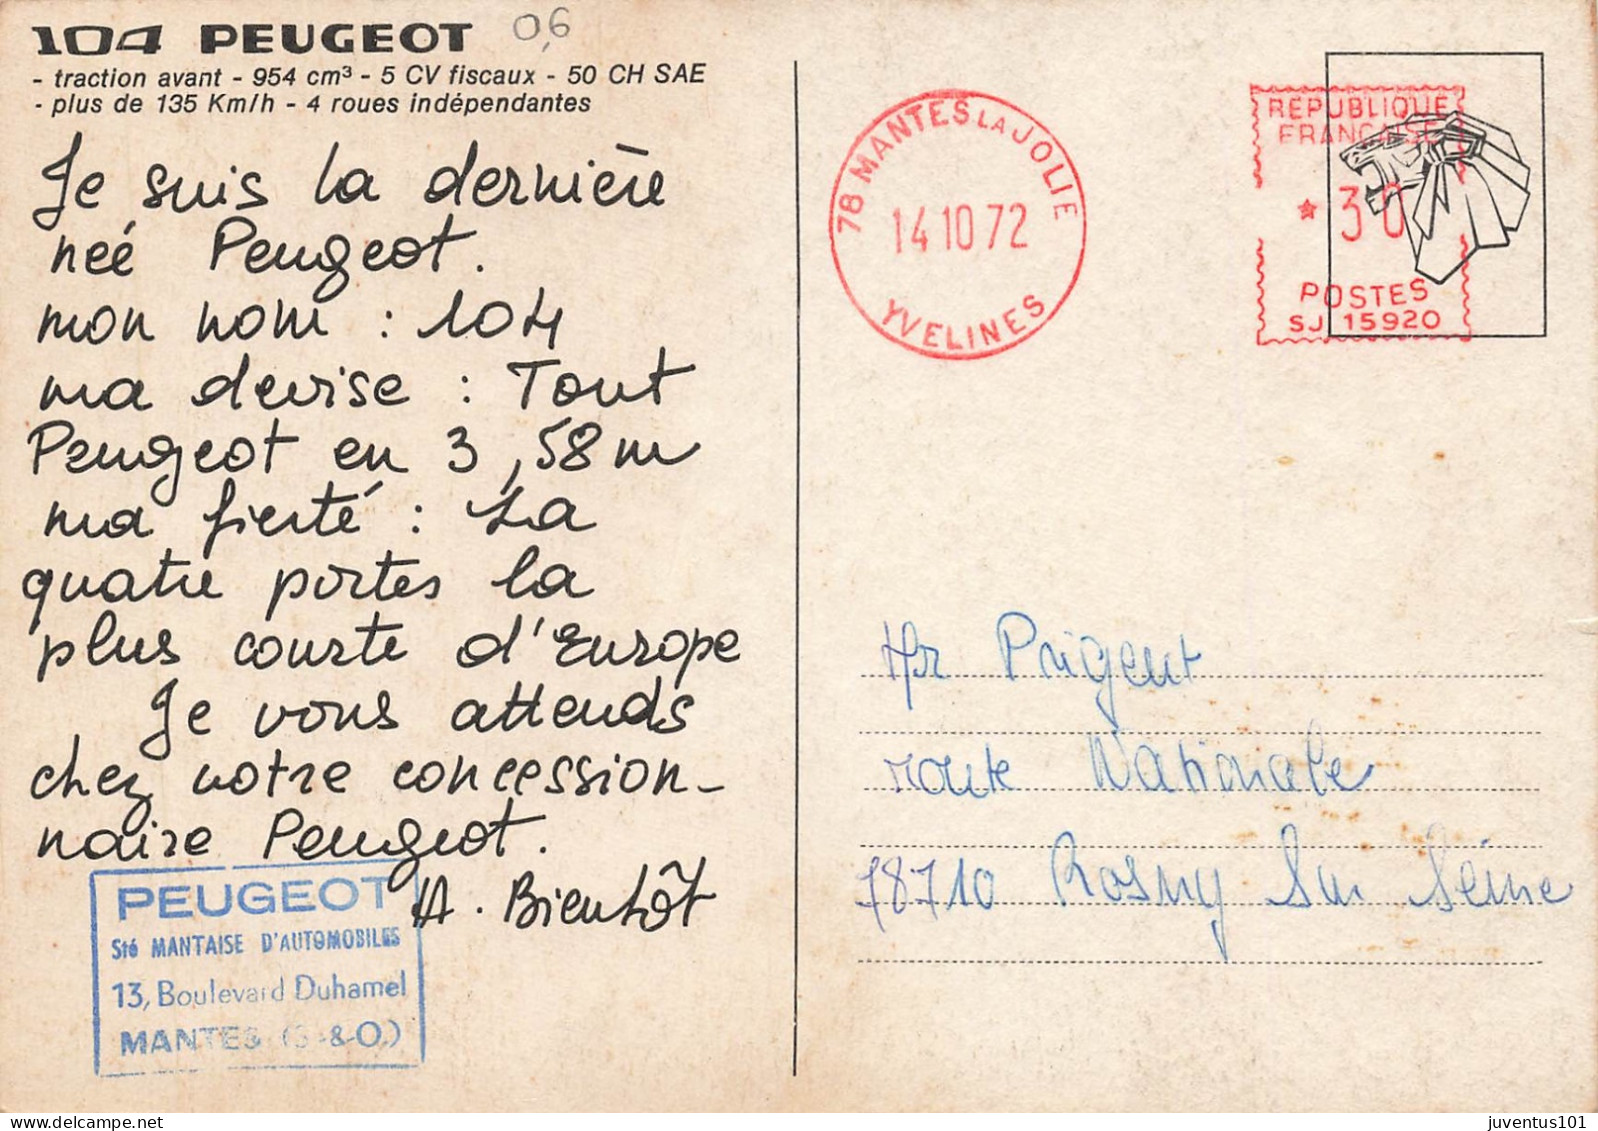 104 PEUGEOT
0,6
- traction avant - 954 cm³ - 5 CV fiscaux - 50 CH SAE
- plus de 135 Km/h - 4 roues indépendantes
Je suis la dernière
neé Peugeot.
mon nom : 104
ma devise : Tout
Peugeot en 3,58m
ma fierté : La
quatre portes la
plus courte d'Europe
Je vous attends
chez votre concession-
naire Peugeot.
A. Bientôt
PEUGEOT
Sté MANTAISE D'AUTOMOBILES
13, Boulevard Duhamel
MANTES (S-&-O.)
78 MANTES LA JOLIE
14 10 72
YVELINES
RÉPUBLIQUE
FRANÇAISE
* 30
POSTES
SJ 15920
Mr Prigent
route Nationale
78710 Rosny Sur Seine
juventus101